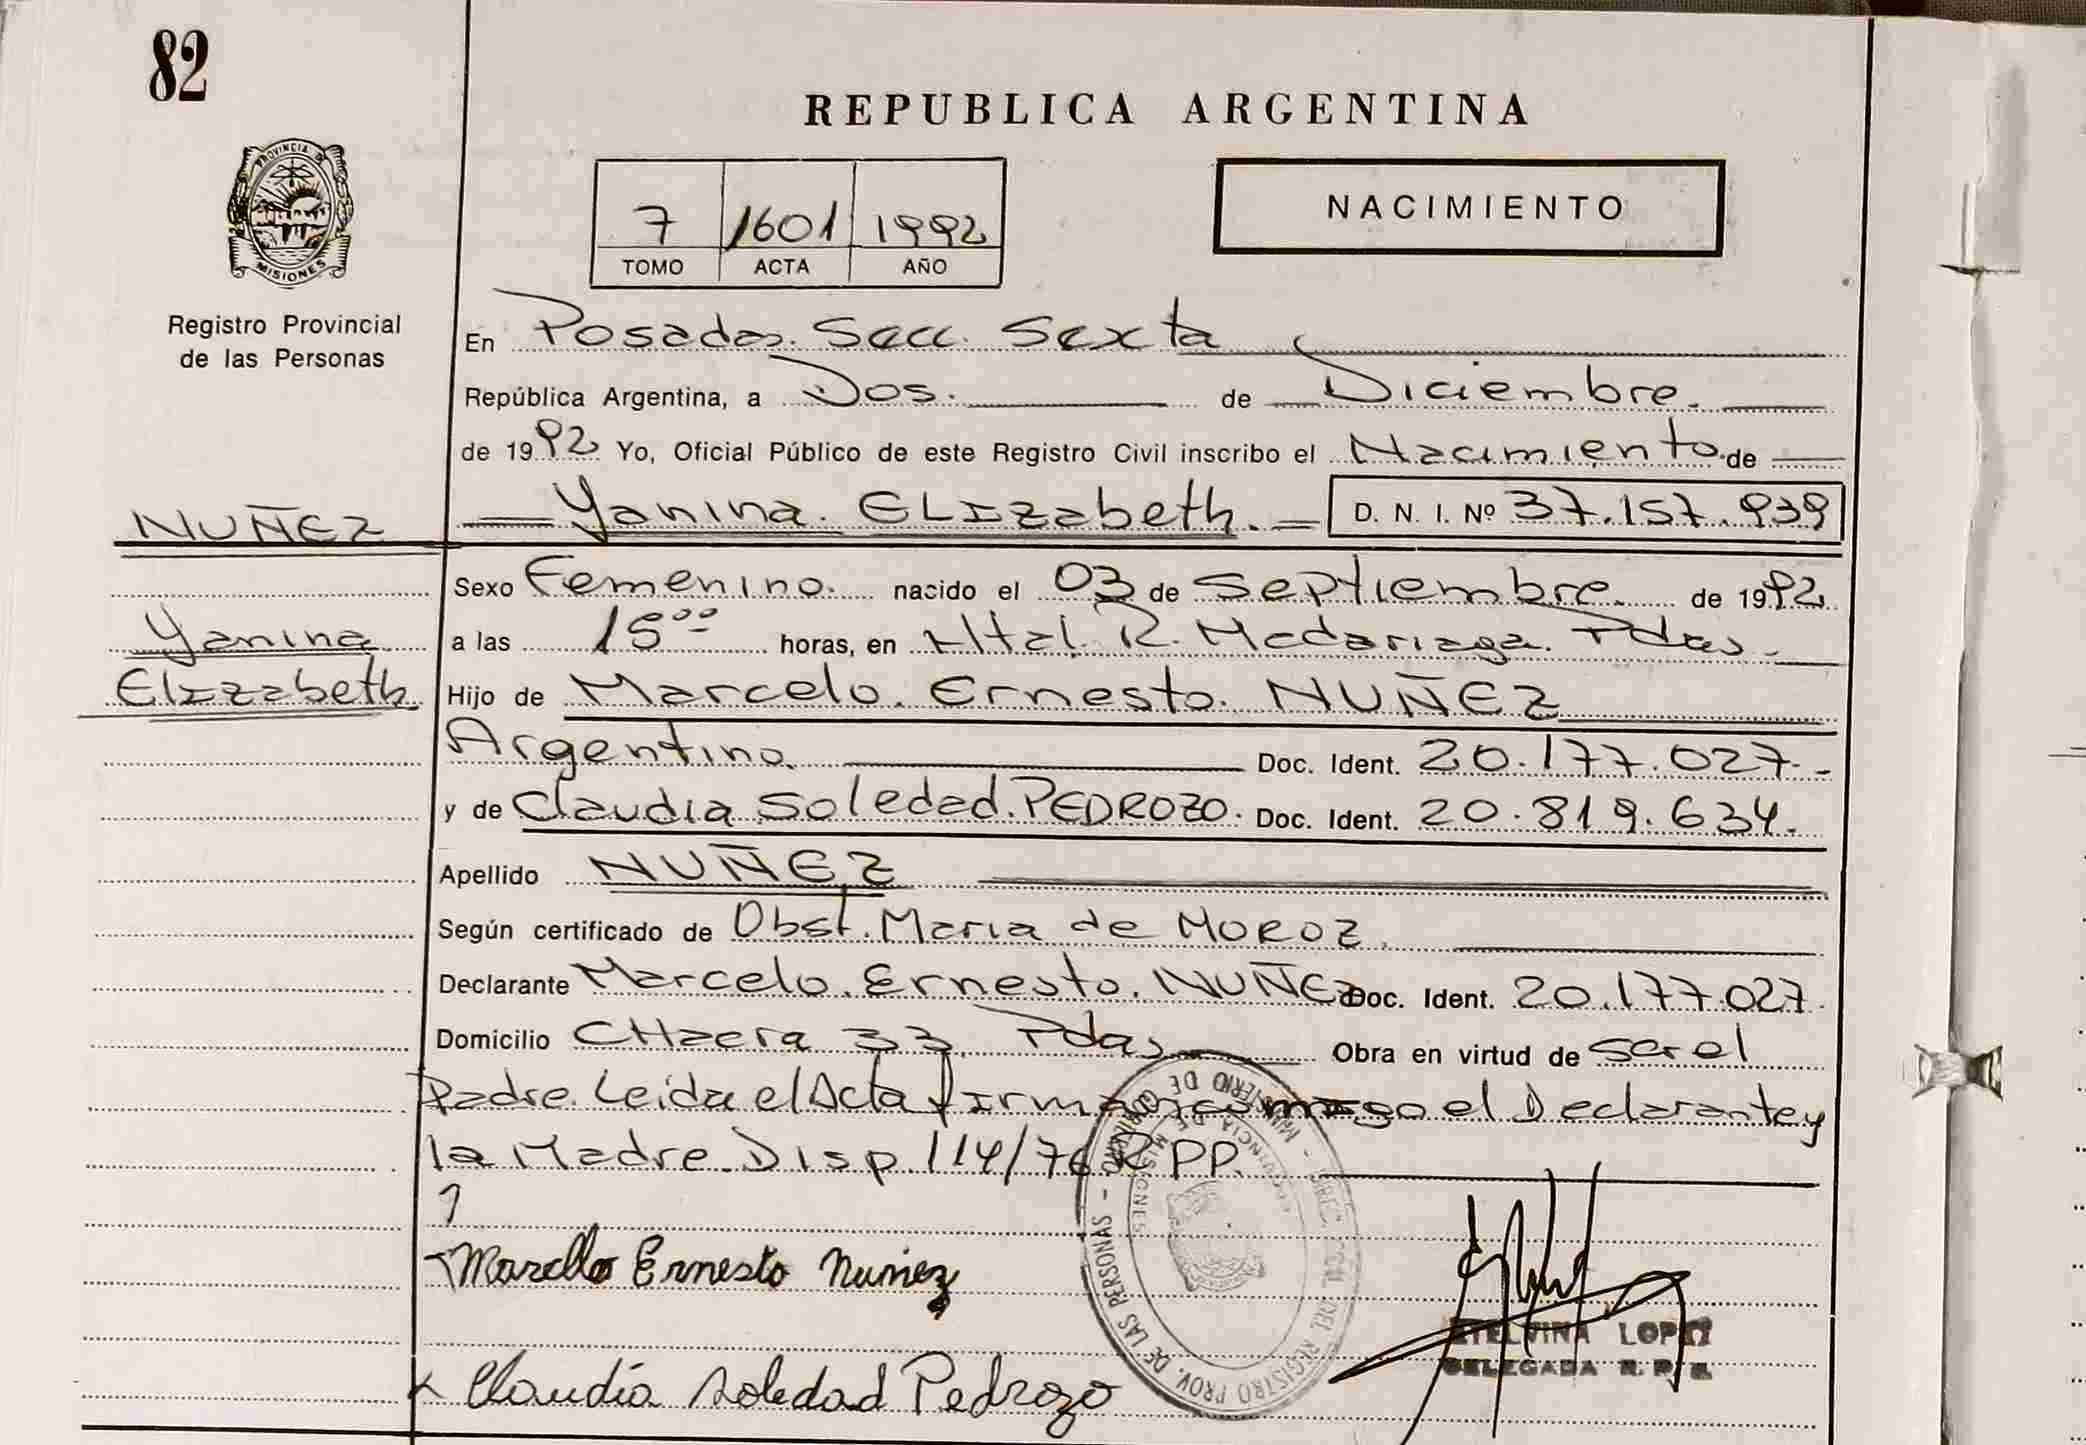 82
REPUBLICA ARGENTINA
PROVINCIA DE
MISIONES
Registro Provincial
de las Personas
7 1601 1992
TOMO ACTA AÑO
NACIMIENTO
En Posadas. Secc. Sexta
República Argentina, a Dos. de Diciembre.
de 1992 Yo, Oficial Público de este Registro Civil inscribo el Nacimiento de
NUÑEZ
Yanina. ELIzabeth. D. N. I. Nº 37.157.939
Sexo Femenino. nacido el 03 de Septiembre. de 1992
Yanina
a las 15ºº horas, en Htal. R. Madariaga. Pdas.
Elizabeth
Hijo de Marcelo. Ernesto. NUÑEZ
Argentino. Doc. Ident. 20.177.027.
y de Claudia Soledad. PEDROZO. Doc. Ident. 20.819.634.
Apellido NUÑEZ
Según certificado de Obst. Maria de MOROZ.
Declarante Marcelo. Ernesto. NUÑEZ Doc. Ident. 20.177.027.
Domicilio CHacra 33, Pdas Obra en virtud de ser el
Padre. Leida el Acta firman conmigo el Declarante y
la Madre. Disp 114/76 R PP.
Marcelo Ernesto Nuñez
Claudia Soledad Pedrozo
ETELVINA LOPEZ
DELEGADA R. P. P.
REGISTRO PROV. DE LAS PERSONAS - MINISTERIO DE GOBIERNO
PROVINCIA DE MISIONES